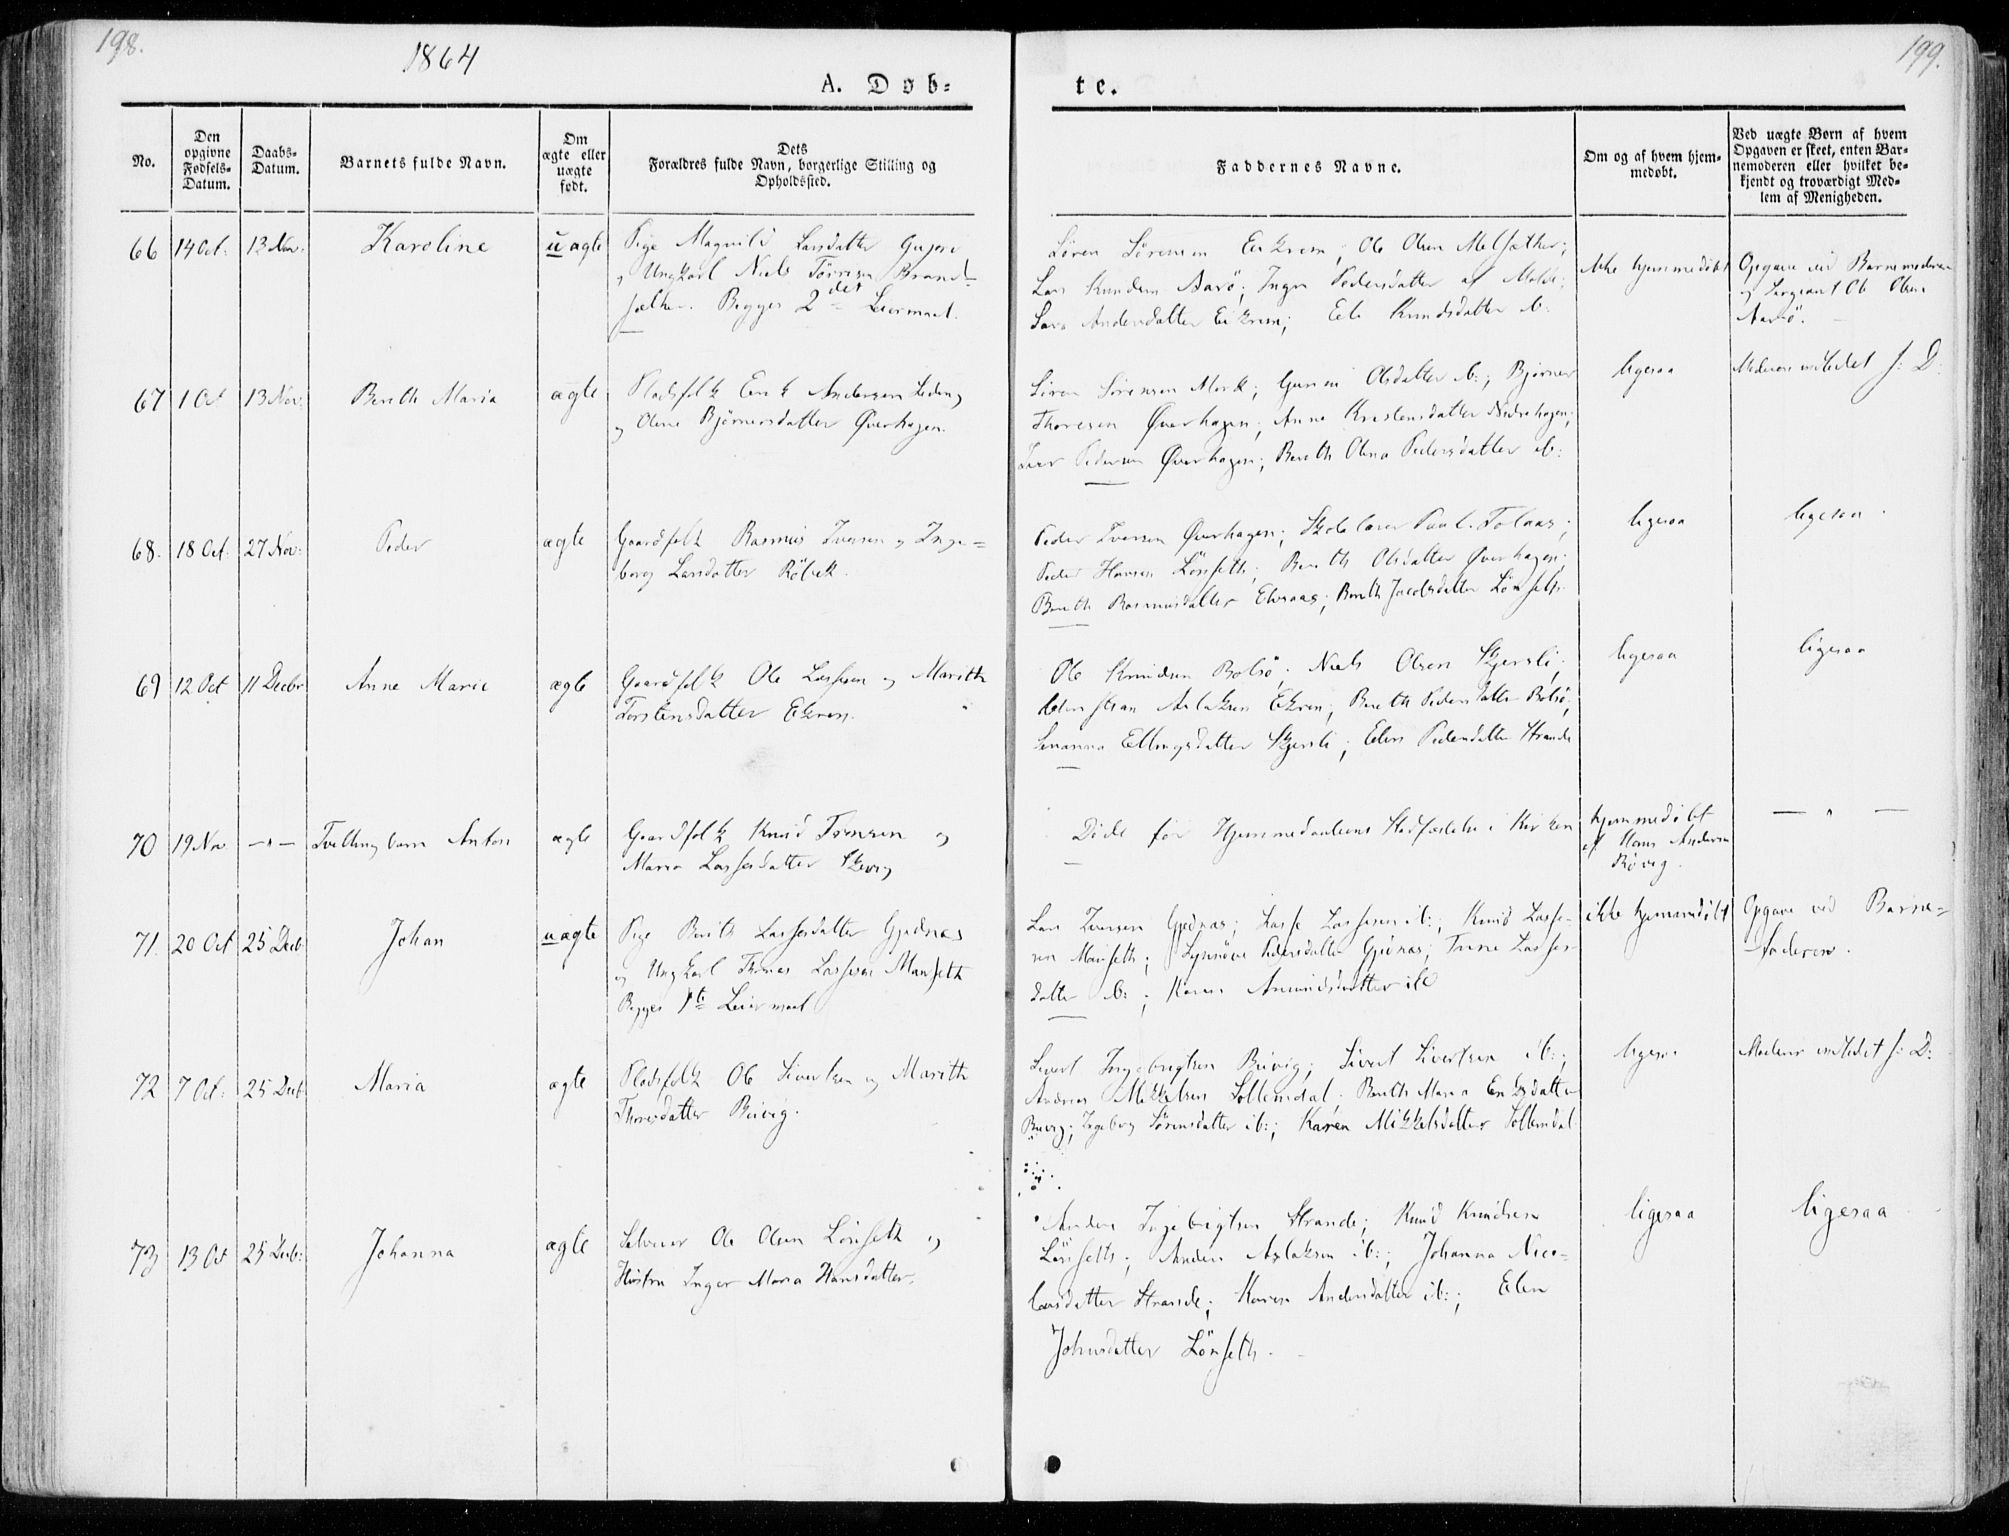 198.
1864
199.
A. Døb-
te.
No.
Den opgivne Fødsels-Datum.
Daabs-Datum.
Barnets fulde Navn.
Om ægte eller uægte født.
Dets Forældres fulde Navn, borgerlige Stilling og Opholdssted.
Faddernes Navne.
Om og af hvem hjem-medøbt.
Ved uægte Børn af hvem Opgaven er skeet, enten Bar-nemoderen eller hvilket be-kjendt og troværdigt Med-lem af Menigheden.
66 14 Oct: 13 Nov: Karoline uægte Pige Magnild Larsdatter
og Ungkarl Niels Brand-
sæther. Begges 2det Leiermaal.
Søren Sørensen Eikrem; Ole Olsen Melsæther;
Lars Knudsen Aarö; Inger Pedersdatter af Molde;
Andersdatter Eikrem; Knudsdatter ib:
ikke hjemmedöbt
Opgave ved Barnemoderen
og Sergeant Ole Olsen
Aarö.
67 1 Oct 13 Nov: Berith Maria ægte Pladsfolk Erik Andersen
og Olene Bjørnersdatter Øverhagen.
Sören Sörensen Mork; Olsdatter ib:; Bjørner
Thoresen Øverhagen; Anne Kristensdatter Nedrehagen;
Iver Pedersen Øverhagen; Berith Olena Pedersdatter ib:
ligesaa
Moderen indledet s: D:
68. 18 Oct: 27 Nov: Peder ægte Gaardfolk Rasmus Iversen og Inge-
borg Larsdatter Röbek.
Peder Iversen Øverhagen; Skolelærer Paul Tolaas;
Peder Hansen Lönseth; Berith Olsdatter Øverhagen;
Berith Rasmusdatter Elvsaas; Berith Jacobsdatter Lönseth.
ligesaa
ligesaa
69 12 Oct 11 Decbr Anne Marie ægte Gaardfolk Ole Lassesen og Marith
Torstensdatter Ekren.
Ole Knudsen Bolsö; Niels Olsen Skjersli;
Aslaksen Ekren; Berith Pedersdatter Bolsö;
Ellingsdatter Skjersli; Elen Pedersdatter Strande
ligesaa
ligesaa
70 19 Nov — " — Tvillingbarn Anton ægte Gaardfolk Knud og
Maria Lassesdatter
Döde för Hjemmedaabens Stadfæstelse i Kirken
hjemmedöbt
af Hans Andersen
Rövig.
— " —
71. 20 Oct 25 Decb Johan uægte Pige Berith Lassesdatter Gjednæs
og Ungkarl Thomas Lassesen Manseth
Begges 1te Leiermaal
Lars Iversen Gjednæs; Lasse Lassesen ib:; Knud Lasse-
sen Manseth; Synnöve Pedersdatter Gjednæs; Trine Lasses-
datter ib:; Karen Amundsdatter ib
ikke hjemmedöbt
Opgave ved Barne-
faderen.
72 7 Oct: 25 Decb Maria ægte Pladsfolk Ole Sivertsen og Marith
Thoresdatter Büvig.
Sivert Ingebrigtsen Büvig; Sivert Sivertsen ib:;
Andreas Mikkelsen Sollemdal. Berith Maria Eriksdatter
Büvig; Ingeborg Sörensdatter ib:; Karen Mikkelsdatter Sollemdal
ligesaa
Moderen indledet s: D:
73 13 Oct 25 Decb: Johanna ægte Selveier Ole Olsen Lönseth og
Hustru Inger Maria Hansdatter.
Anders Ingebrigtsen Strande; Knud Knudsen
Lönseth; Anders Aslaksen ib:; Johanna Nico-
laisdatter Strande; Karen Andersdatter ib:; Elen
Johnsdatter Lönseth.
ligesaa
ligesaa